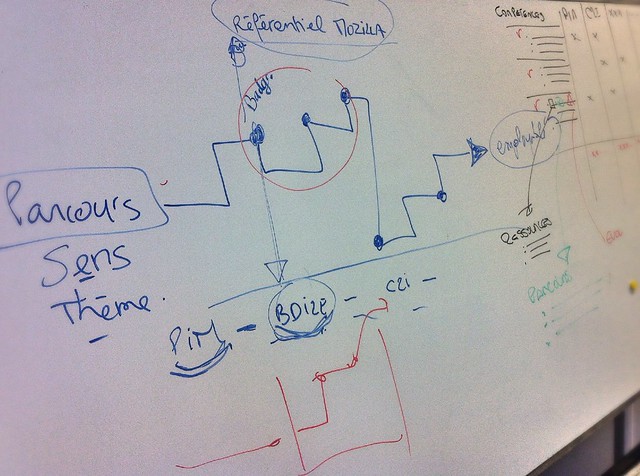 Référentiel MOZILLA
Compétences
PIM
C2I
Badge
Parcours
Sens
Thème.
Ressources
PARCOURS
PIM - BDIZE - C2I -